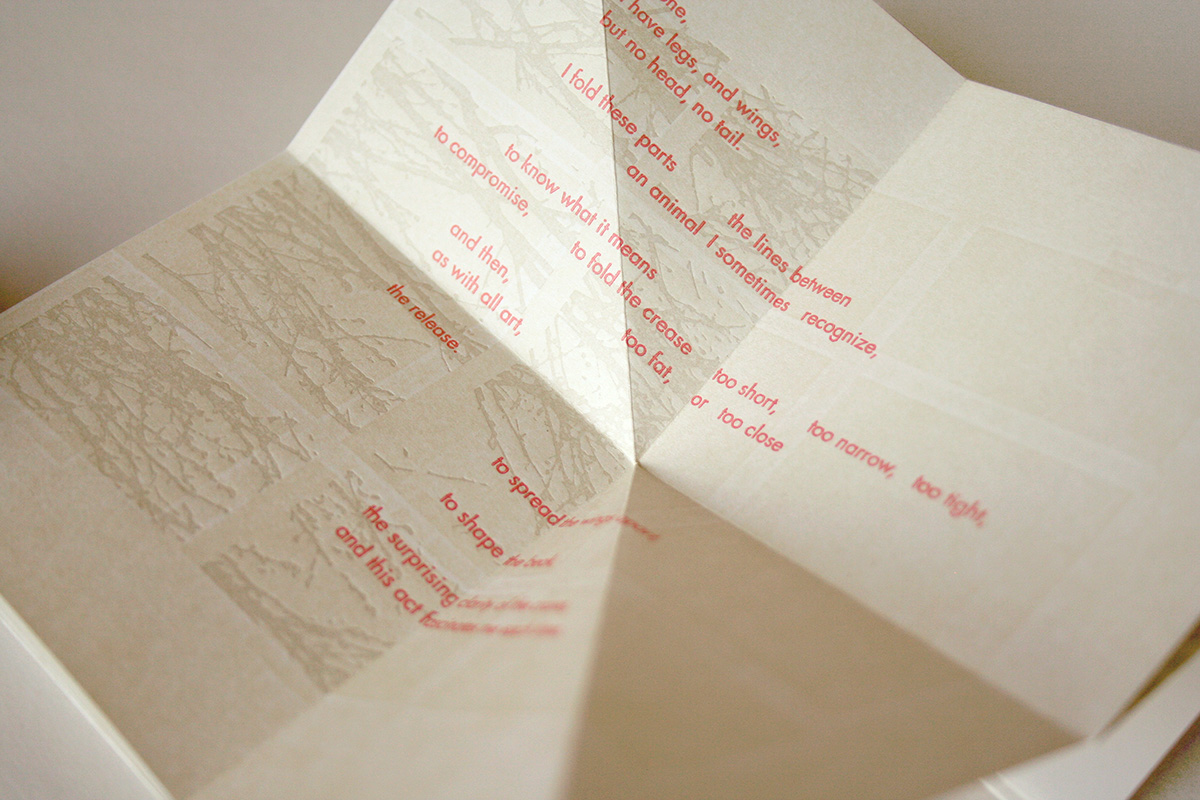 have legs, and wings,
but no head, no tail.
I fold these parts
the lines between
an animal I sometimes recognize,
to know what it means
to compromise,
to fold the crease
too fat, too short, too narrow, too tight,
or too close
and then,
as with all art,
the release.
to spread the wings
to shape the beak
the surprising clarity of the
and this act fascinates me each time